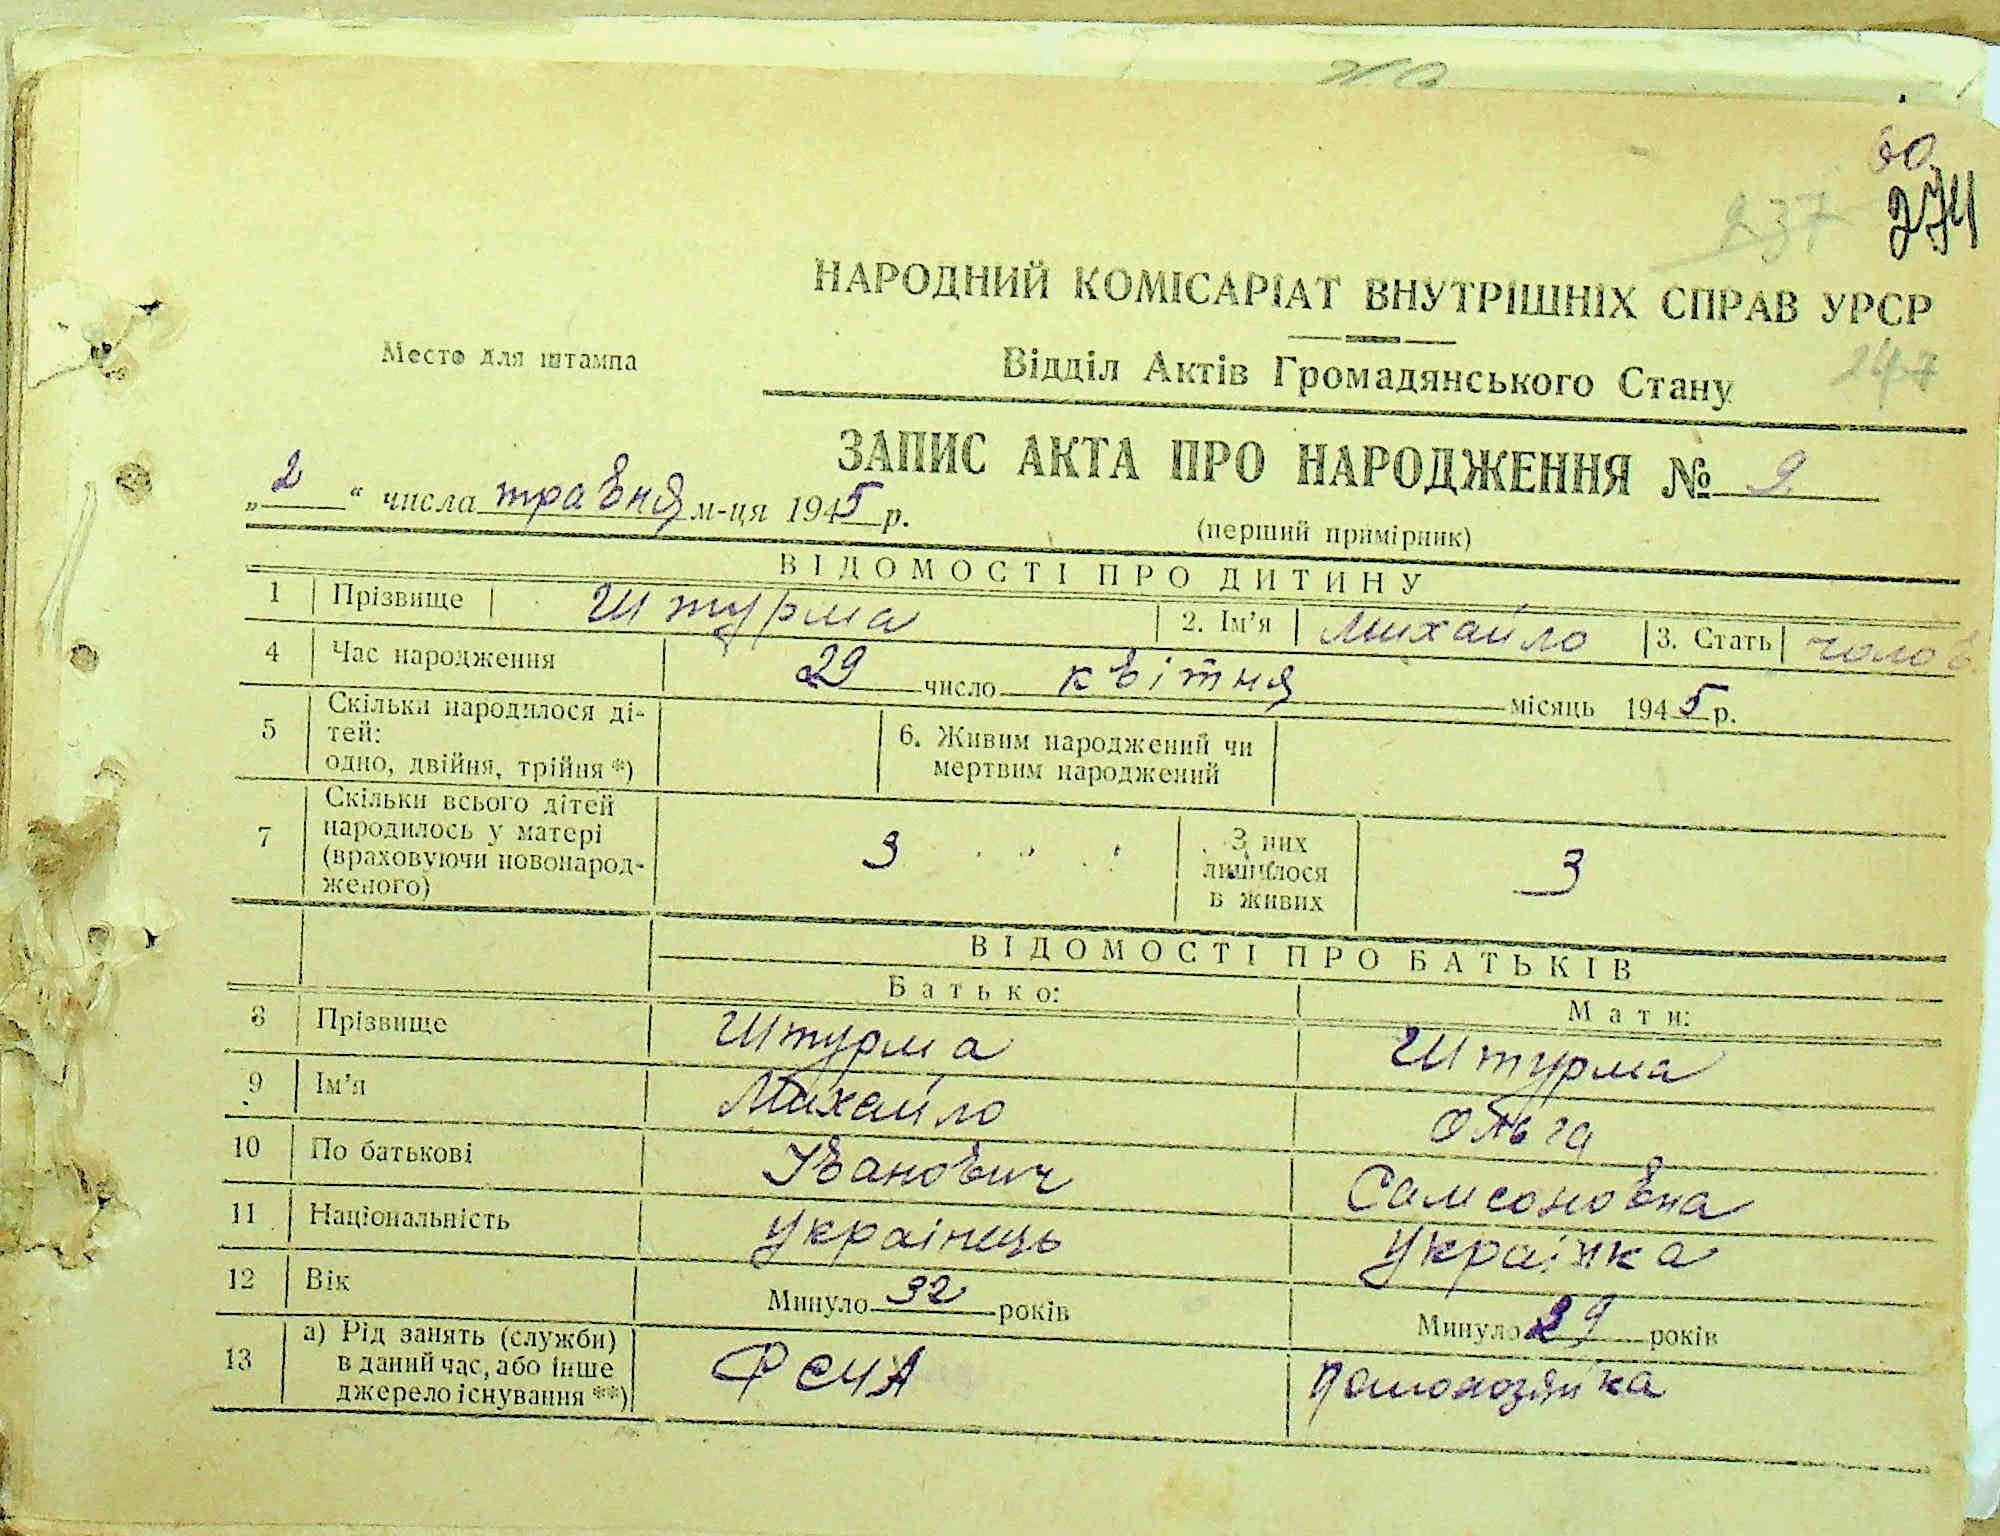 60
274
237
НАРОДНИЙ КОМІСАРІАТ ВНУТРІШНІХ СПРАВ УРСР
Место для штампа
Відділ Актів Громадянського Стану
147
ЗАПИС АКТА ПРО НАРОДЖЕННЯ № 9.
„2“ числа травня м-ця 1945 р.
(перший примірник)
ВІДОМОСТІ ПРО ДИТИНУ
1 Прізвище Штурма 2. Ім'я Михайло 3. Стать чолов.
4 Час народження 29 число квітня місяць 1945 р.
5 Скільки народилося ді-
тей:
одно, двійня, трійня *)
6. Живим народжений чи
мертвим народжений
7 Скільки всього дітей
народилось у матері
(враховуючи новонарод-
женого)
3
З них
лишилося
в живих
3
ВІДОМОСТІ ПРО БАТЬКІВ
Батько: Мати:
8 Прізвище Штурма Штурма
9 Ім'я Михайло Ольга
10 По батькові Іванович Самсоновна
11 Національність українець українка
12 Вік Минуло 32 років Минуло 29 років
13 а) Рід занять (служби)
в даний час, або інше
джерело існування **)
РСЧА домохозяйка